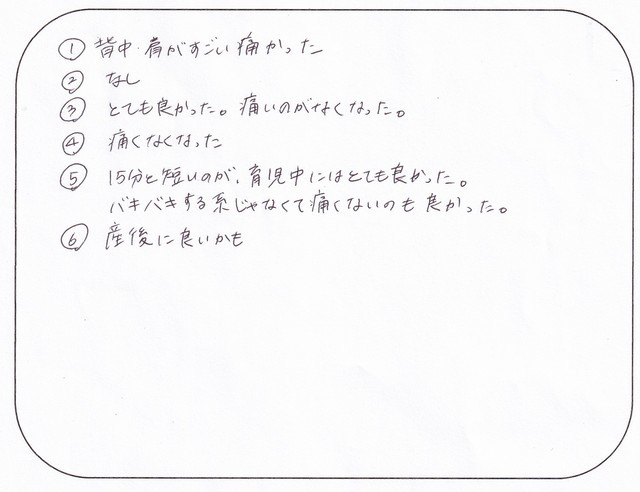 ① 背中・肩がすごい痛かった
② なし
③ とても良かった。痛いのがなくなった。
④ 痛くなくなった
⑤ 15分と短いのが、育児中にはとても良かった。
バキバキする系じゃなくて痛くないのも良かった。
⑥ 産後に良いかも